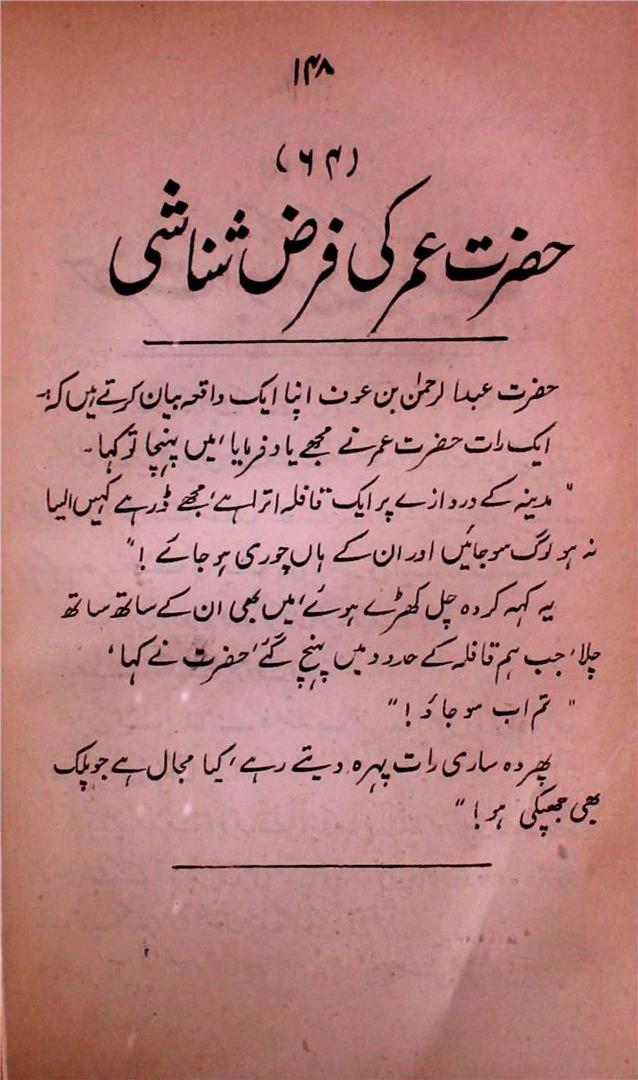 ۱۴۸
(۶۴)
حضرت عمر کی فرض شناشی
حضرت عبدالرحمٰن بن عوف اپنا ایک واقعہ بیان کرتے ہیں کہ:۔
ایک رات حضرت عمر نے مجھے یاد فرمایا، میں پہنچا تو کہا۔
"مدینہ کے دروازے پر ایک قافلہ اترا ہے، مجھے ڈر ہے کہیں ایسا
نہ ہو لوگ سو جائیں اور ان کے ہاں چوری ہو جائے!"
یہ کہہ کر وہ چل کھڑے ہوئے، میں بھی ان کے ساتھ ساتھ
چلا، جب ہم قافلہ کے حدود میں پہنچ گئے، حضرت نے کہا،
"تم اب سو جاؤ!"
پھر وہ ساری رات پہرہ دیتے رہے، کیا مجال ہے جو پلک
بھی جھپکی ہو!"